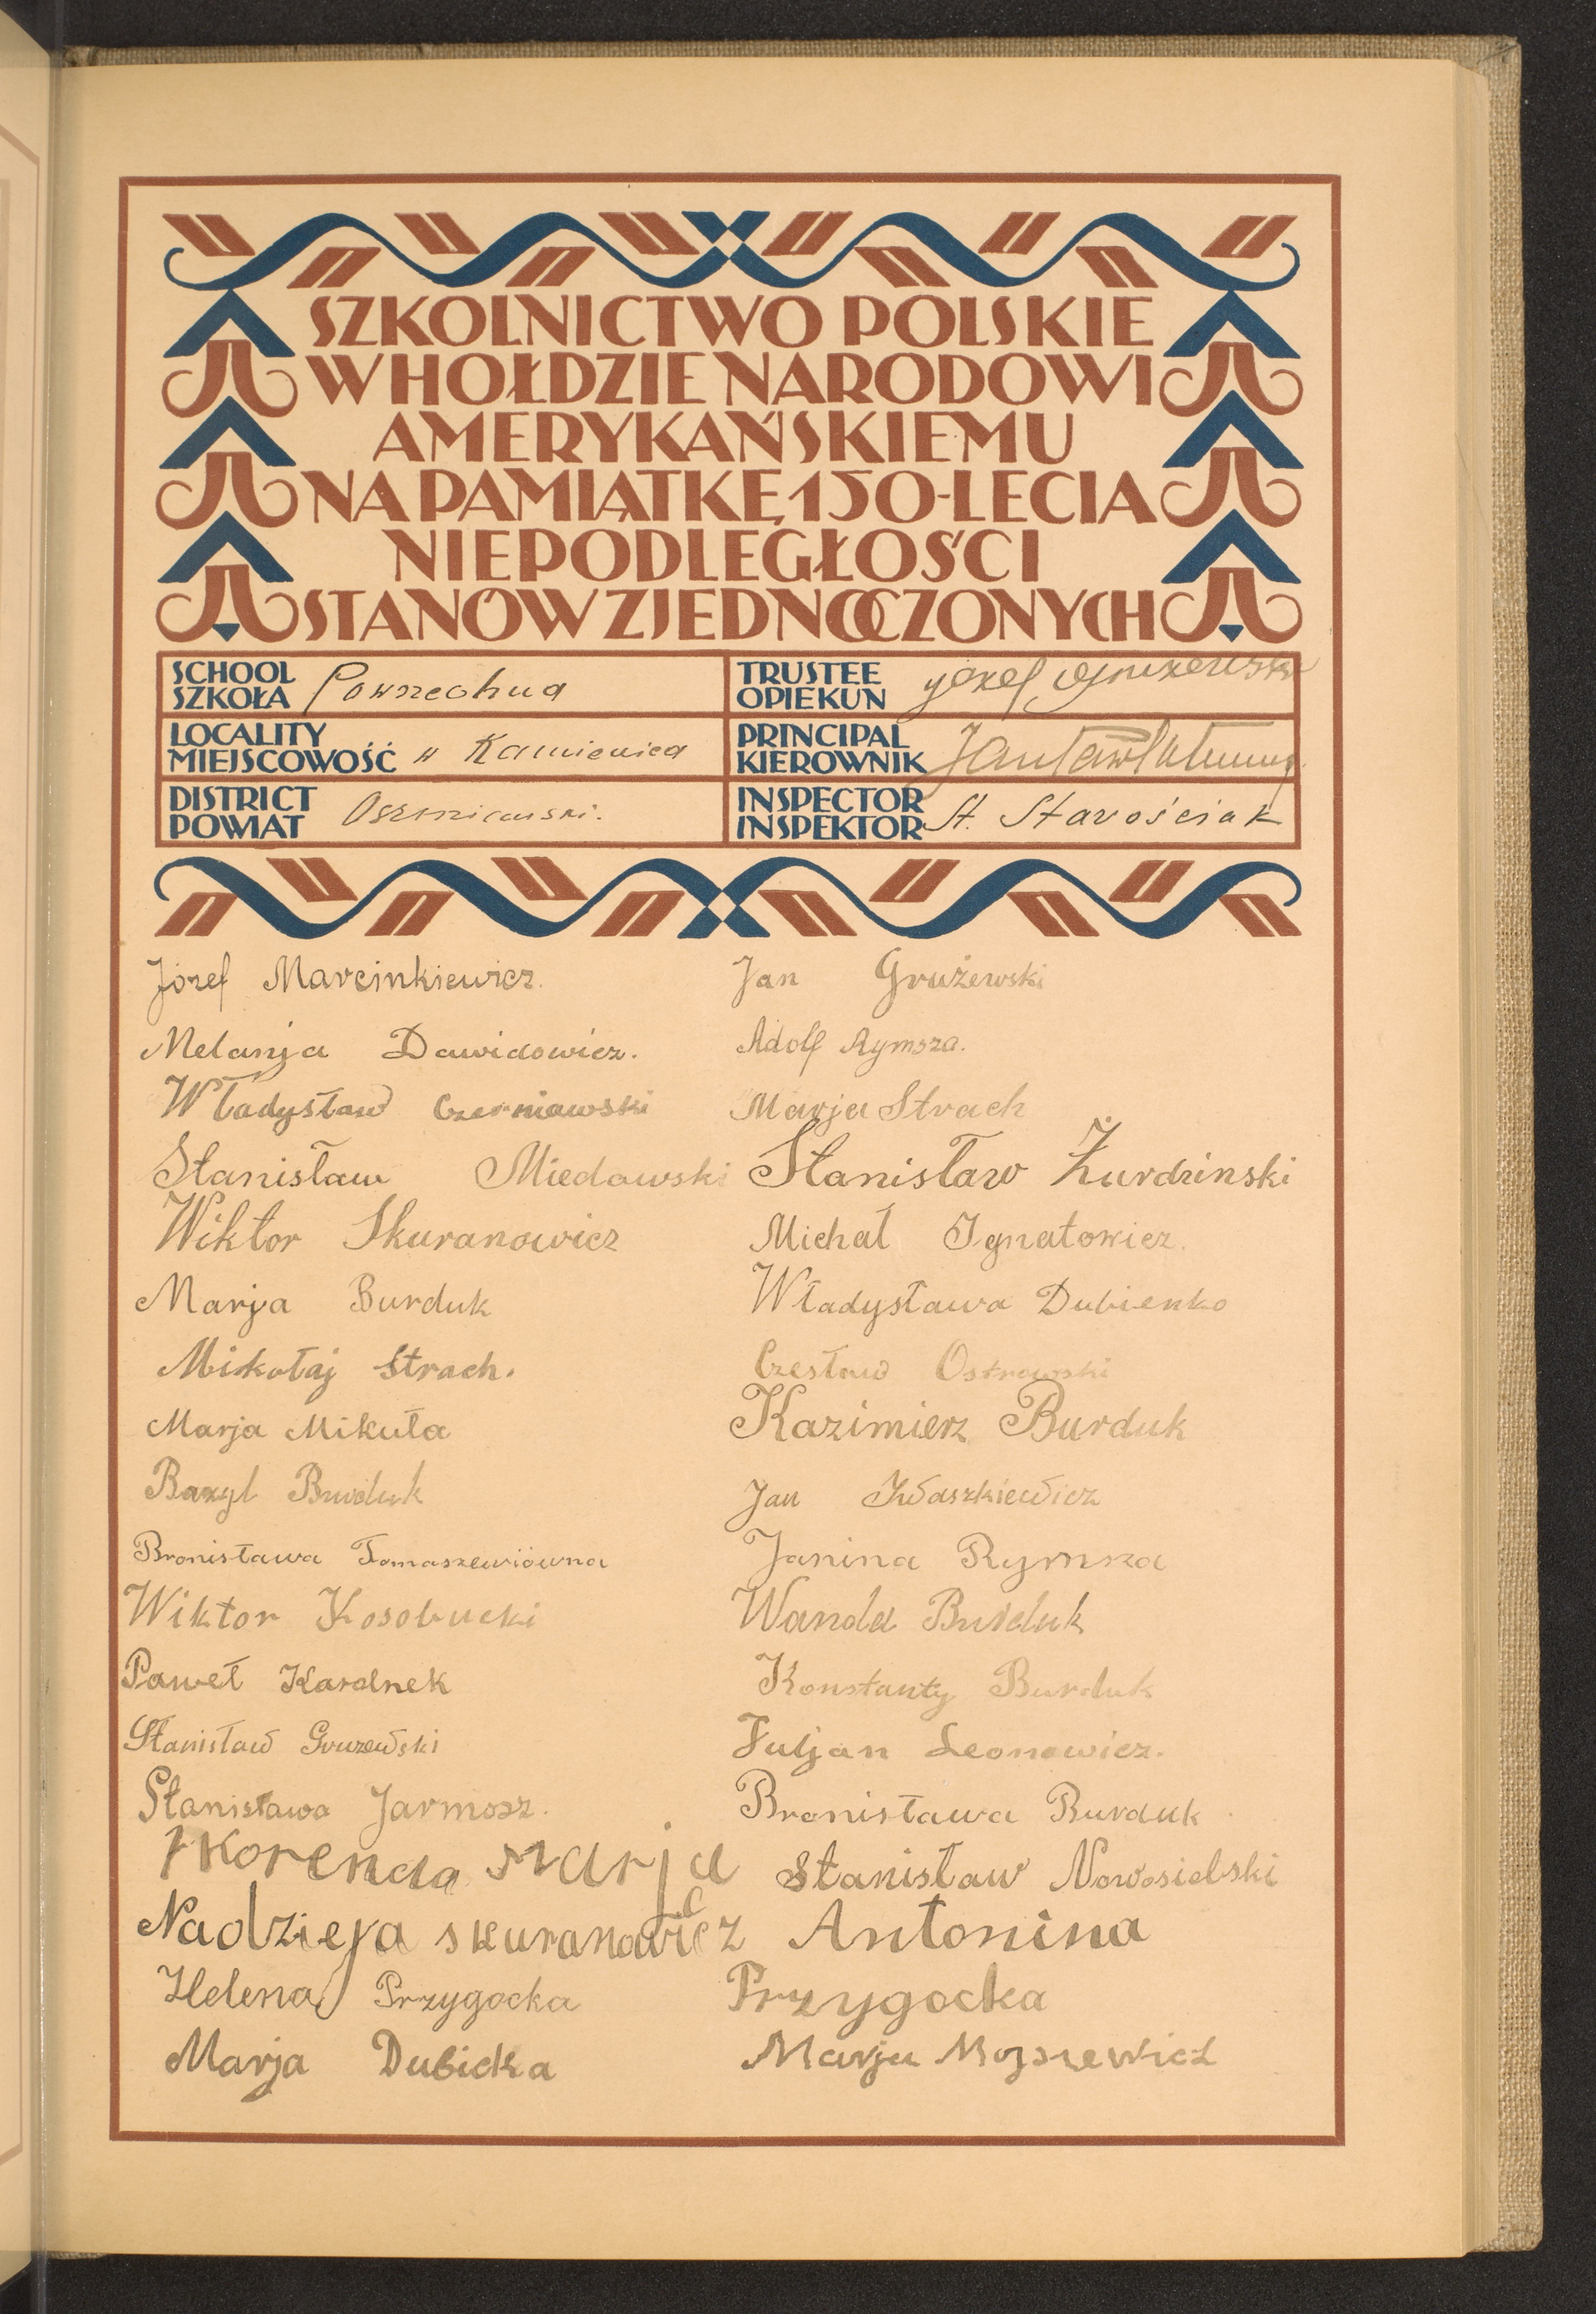 SZKOLNICTWO POLSKIE
W HOŁDZIE NARODOWI
AMERYKAŃSKIEMU
NA PAMIĄTKĘ 150-LECIA
NIEPODLEGŁOŚCI
STANÓW ZJEDNOCZONYCH
SCHOOL
SZKOŁA Powszechna
TRUSTEE
OPIEKUN Józef
LOCALITY
MIEJSCOWOŚĆ w Kamienica
PRINCIPAL
KIEROWNIK
DISTRICT
POWIAT Oszmiański.
INSPECTOR
INSPEKTOR St. Starościak
Józef Marcinkiewicz.
Melanja Dawidowicz.
Władysław Czerniawski
Stanisław Miedawski
Wiktor Skuranowicz
Marja Burduk
Mikołaj Strach.
Marja Mikuła
Bazyl Burduk
Bronisława Tomaszewiówna
Wiktor Kosobucki
Paweł Karolnek
Stanisław Gruzewski
Stanisława Jarmosz.
Skorenda Marja
Nadzieja skuranowicz
Helena Przygocka
Marja Dubicka
Jan Grużewski
Adolf Rymsza.
Marja Strach
Stanisław Żurdzinski
Michał Ignatowicz.
Władysława Dubienko
Czesław Ostrowski
Kazimierz Burduk
Jan Iwaszkiewicz
Janina Rymsza
Wanda Burduk
Konstanty Burduk
Juljan Leonowicz.
Bronisława Burduk
Stanisław Nowosielski
Antonina
Przygocka
Marja Mojszewicz